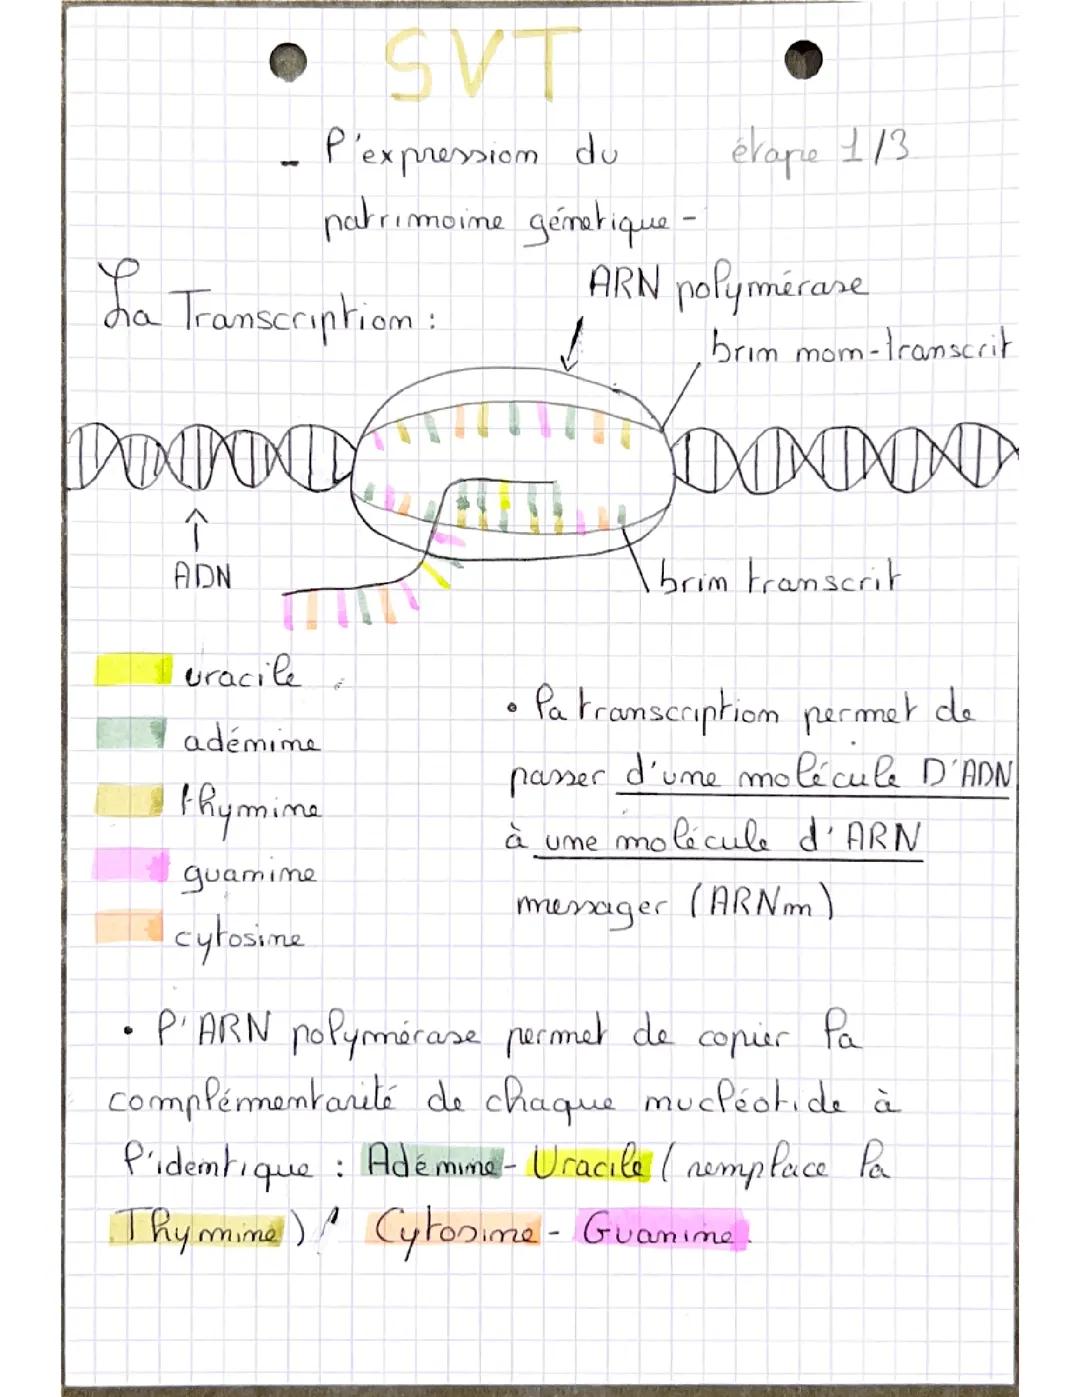 SVT
- l'expression du
étape 1/3
patrimoine génétique -
La Transcription :
ARN polymérase
brin non-transcrit
ADN
brin transcrit
uracile
adénine
thymine
guanine
cytosine
• la transcription permet de
passer d'une molécule D'ADN
à une molécule d'ARN
messager (ARNm)
• l'ARN polymérase permet de copier la
complémentarité de chaque nucléotide à
l'identique : Adénine - Uracile ( remplace la
Thymine ) / Cytosine - Guanine.